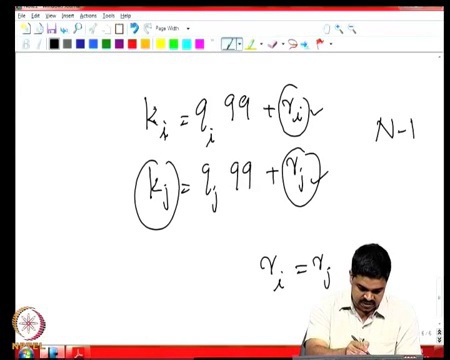 File Edit View Insert Actions Tools Help
Page Width
k_i = q_i 99 + r_i
N-1
k_j = q_j 99 + r_j
r_i = r_j